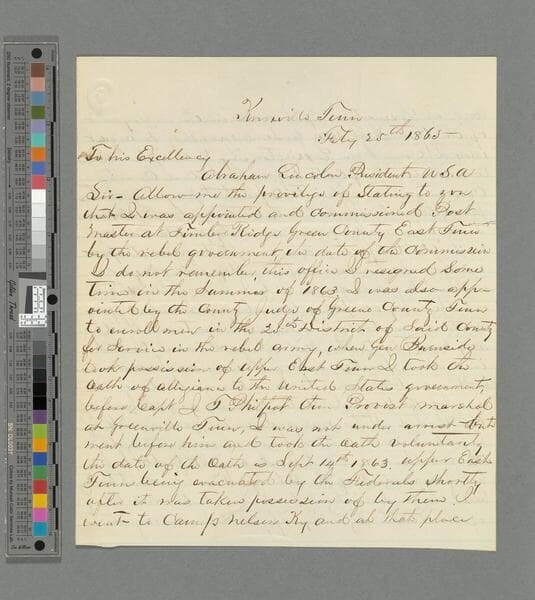 Knoxville Tenn
Feby 25th 1865
To his Excellency
Abraham Lincoln President U.S.A
Sir- Allow me the privilege of Stating to you
that I was appointed and commissioned Post
Master at Timber Ridge Green County East Tenn
by the rebel government, the date of the Commission
I do not remember, this office I resigned Some
time in the Summer of 1863 I was also app-
ointed by the County Judge of Greene County Tenn
to enroll men in the District of Said County
for Service in the rebel army, when Gen Burnside
took possession of upper East Tenn I took the
Oath of allegiance to the United States government,
before Capt J T Philpot then Provost Marshal
at Greenville Tenn, I was not under arrest but
went before him and took the Oath voluntarily
the date of the Oath is Sept 14th 1863. upper East
Tenn being evacuated by the Federals Shortly
after it was taken possession of by them I
went to Camp Nelson Ky and at that place